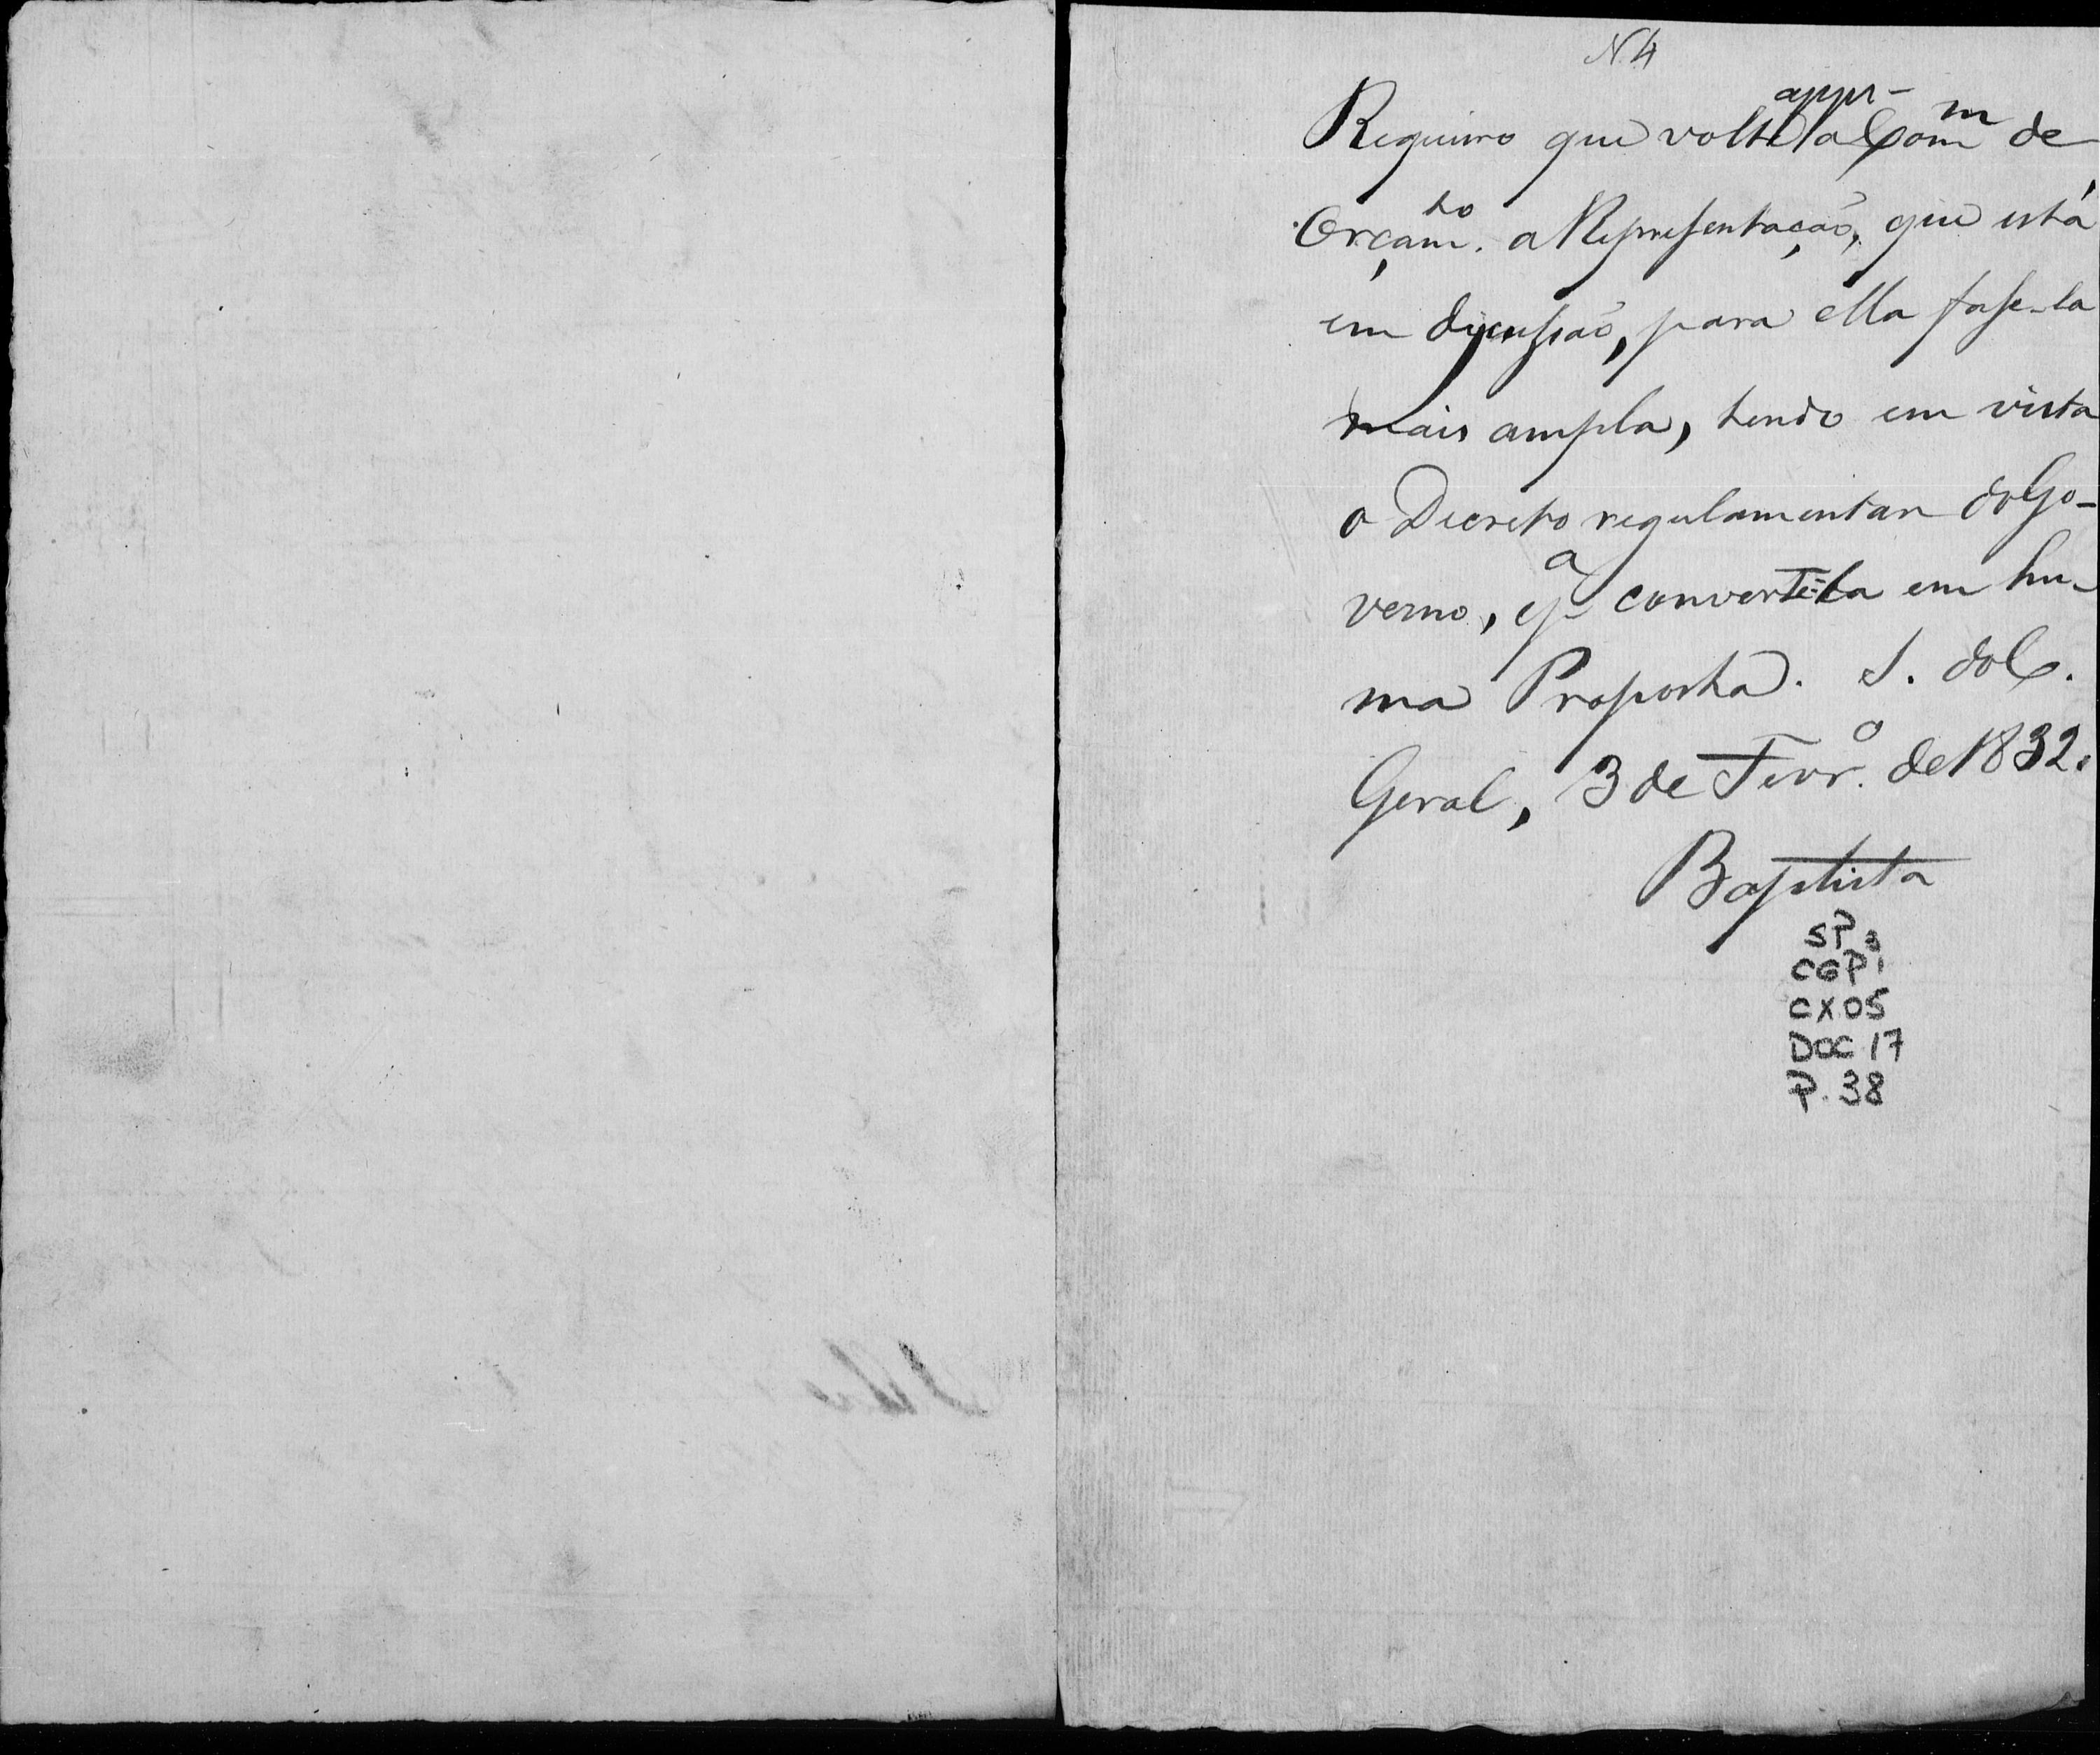 N. 4
appr-
Requeiro que volte a Com.m de
Orçam.to a Representação, que está
em discussão, para ella fase-la
mais ampla, tendo em vista
o Decreto regulamentar do Go-
verno, e p.a converte-la em hu-
ma Proposta. S. do C.
Geral, 3 de Fevr.o de 1832.
Baptista
SP
CGP1
CX05
DOC 17
P. 38